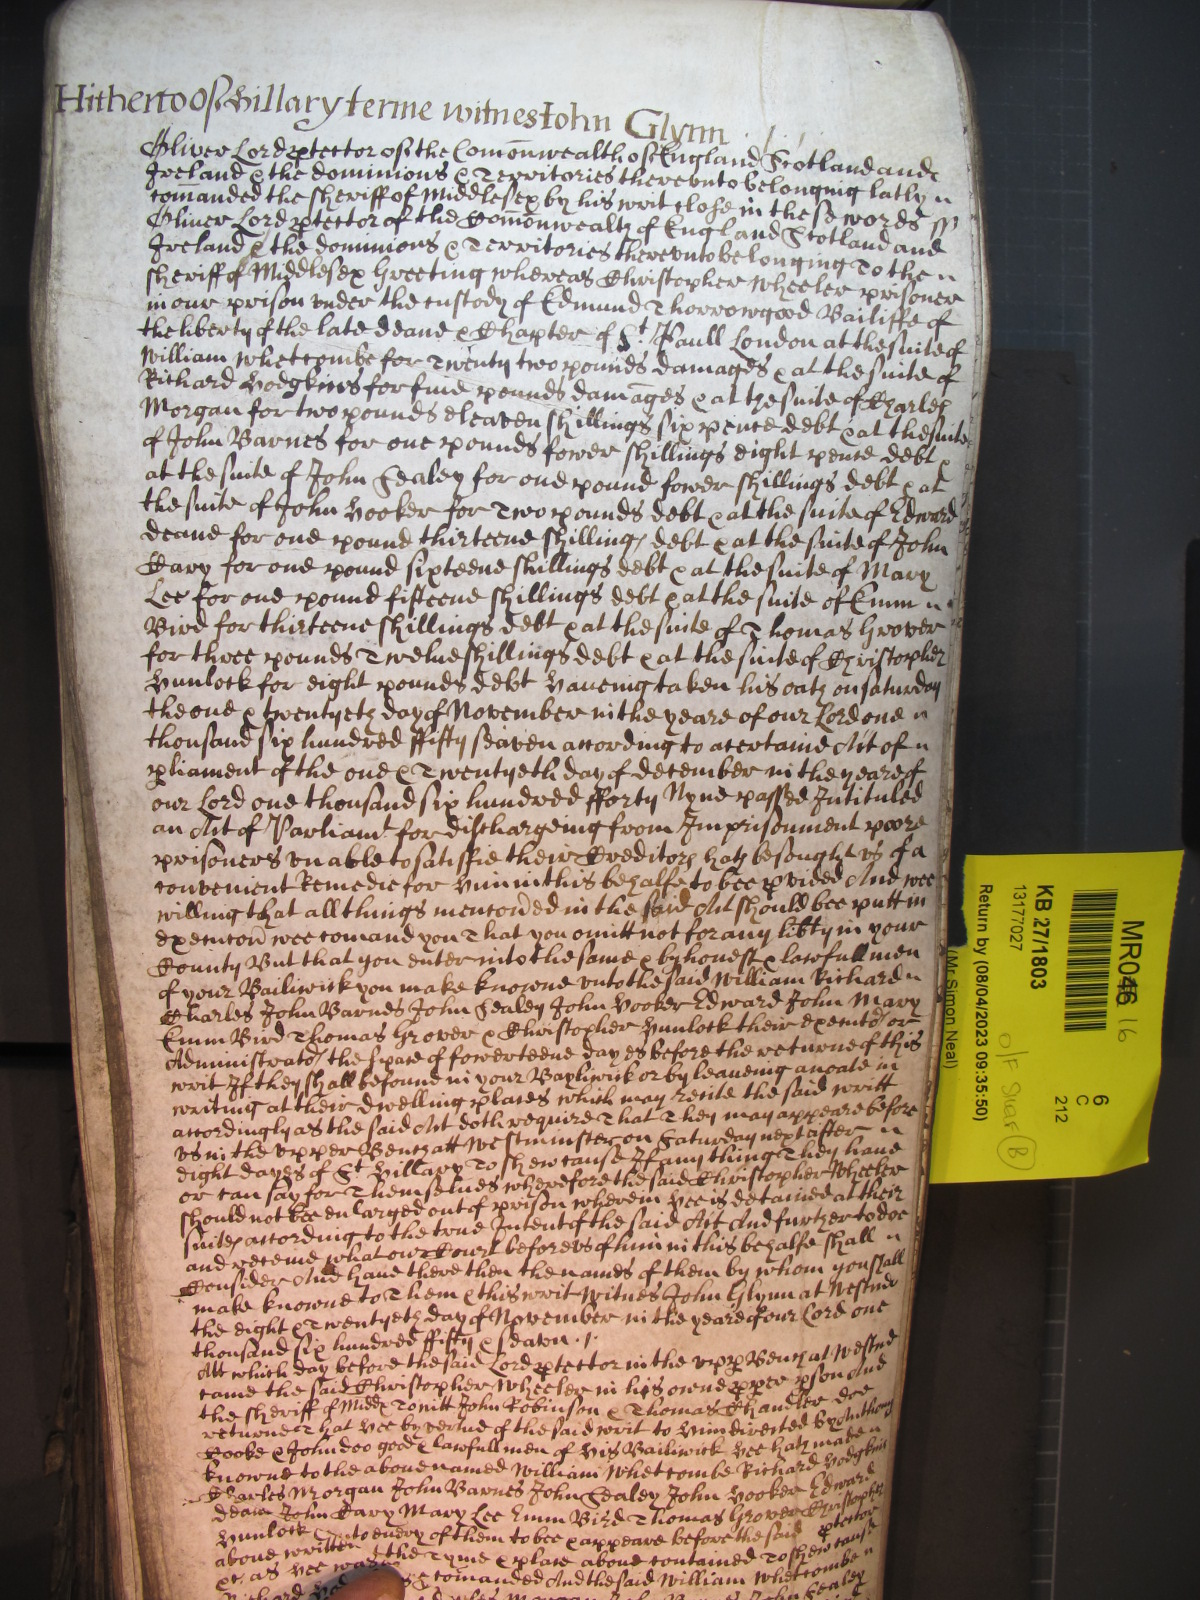 Hitherto of hillary terme witnes John Glynn
Oliver Lord ptector of the Comonwealth of England Scotland and
Ireland & the dominions & Territories therevnto belonging lately
comanded the sheriff of Middlesex by his writ close in these words ss
Oliver Lord ptector of the Comonwealth of England Scotland and
Ireland & the dominions & Territories therevnto belonging To the
sheriff of Middlesex Greeting whereas Christopher Wheeler prisoner
in our prison vnder the custody of Edmund Thorrowgood Bailiffe of
the liberty of the late deane & Chapter of St Paull London at the suite of
William Whetcombe for Twenty two pounds damages & at the suite of
Richard Hodgkins for fiue pounds damages & at the suite of Charles
Morgan for two pounds eleaven shillings six pence debt & at the suite
of John Barnes for one pounds fower shillings eight pence debt &
at the suite of John Sealey for one pound fower shillings debt & at
the suite of John Hooker for Two pounds debt & at the suite of Edward
deane for one pound thirteene shillings debt & at the suite of John
Cary for one pound sixteene shillings debt & at the suite of Mary
Lee for one pound fifteene shillings debt & at the suite of Emm
Bird for thirteene shillings debt & at the suite of Thomas Grover
for three pounds Twelue shillings debt & at the suite of Christopher
Hunlock for eight pounds debt Haueing taken his oath on saturday
the one & twentyeth day of November in the yeare of our Lord one
thousand six hundred ffifty seaven according to a certaine Act of
pliament of the one & Twentyeth day of december in the yeare of
our Lord one thousand six hundred fforty Nyne passed Intituled
an Act of Parliamt for dischargeing from Imprisonment poore
prisoners vnable to satisfie their Creditors hath besought vs of a
convenient Remedie for Him in this behalfe to bee pvided And wee
willing that all things menconed in the said Act should bee putt in
execucon wee comand you That you omitt not for any libty in your
County But that you enter into the same & by honest & lawfull men
of your Bailiwick you make knowne vnto the said William Richard
Charles John Barnes John Sealey John Hooker Edward John Mary
Emm Bird Thomas Grover & Christopher Hunlock their executors or
Administrators the space of fowerteene dayes before the returne of this
writ If they shall be found in your Bayliwick or by leaueing a noate in
writing at their dwelling places which may recite the said writt
accordingly as the said Act doth require That They may appeare before
vs in the vpper Bench att Westminster on Saturday next after
eight dayes of St Hillary To shew cause If any thing They haue
or can say for Themselues wherefore the said Christopher Wheeler
should not bee enlarged out of prison wherein Hee is detained at their
suites according to the true Intent of the said Act And further to doe
and receiue what our Court before vs of him in this behalfe shall
Consider And haue there then the names of them by whom you shall
make knowne to Them & this writ Witnes John Glynn at Westmr
the eight & Twentyeth day of November in the yeare of our Lord one
thousand six hundred ffifty & seaven
Att which day before the said Lord ptector in the vpp Bench at Westmr
came the said Christopher Wheeler in his owne pper pson And
the sheriff of Middx To witt John Robinson & Thomas Chandler doe
returne That Hee by vertue of the said writ to Him directed by Anthony
Cooke & John doo good & lawfull men of His Bailiwick Hee hath made
knowne to the aboue named William Whetcombe Richard Hodgkins
Charles Morgan John Barnes John Sealey John Hooker Edward
deane John Cary Mary Lee Emm Bird Thomas Grover Christopher
Hunlock & to euery of them to bee & appeare before the said ptector
aboue written the Tyme & place aboue contained To shew cause
&c as Hee was comanded And the said William Whetcombe
Richard
MR046 16
KB 27/1803
13177027
Return by (08/04/2023 09:35:50)
(Mr Simon Neal)
6
C
212
O/F Shelf B